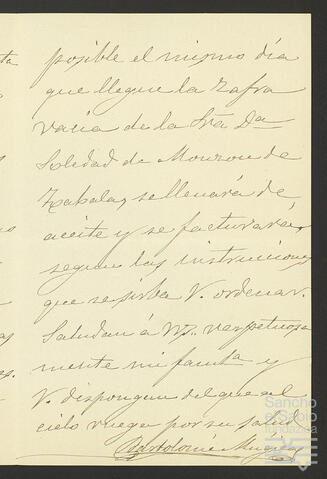 posible el mismo día
que llegue la Zafra
vacia de la Sra. Da
Soledad de Mouzon de
Zabala, se llenará de
aceite y se facturará,
segun las instrucciones
que se sirba V. ordenar.
Saludan á VV. respetuosa
mente mi familia y
V. dispongan del que al
cielo ruega por su salud
Bartolomé
Sancho
el Sabio
fundazioa